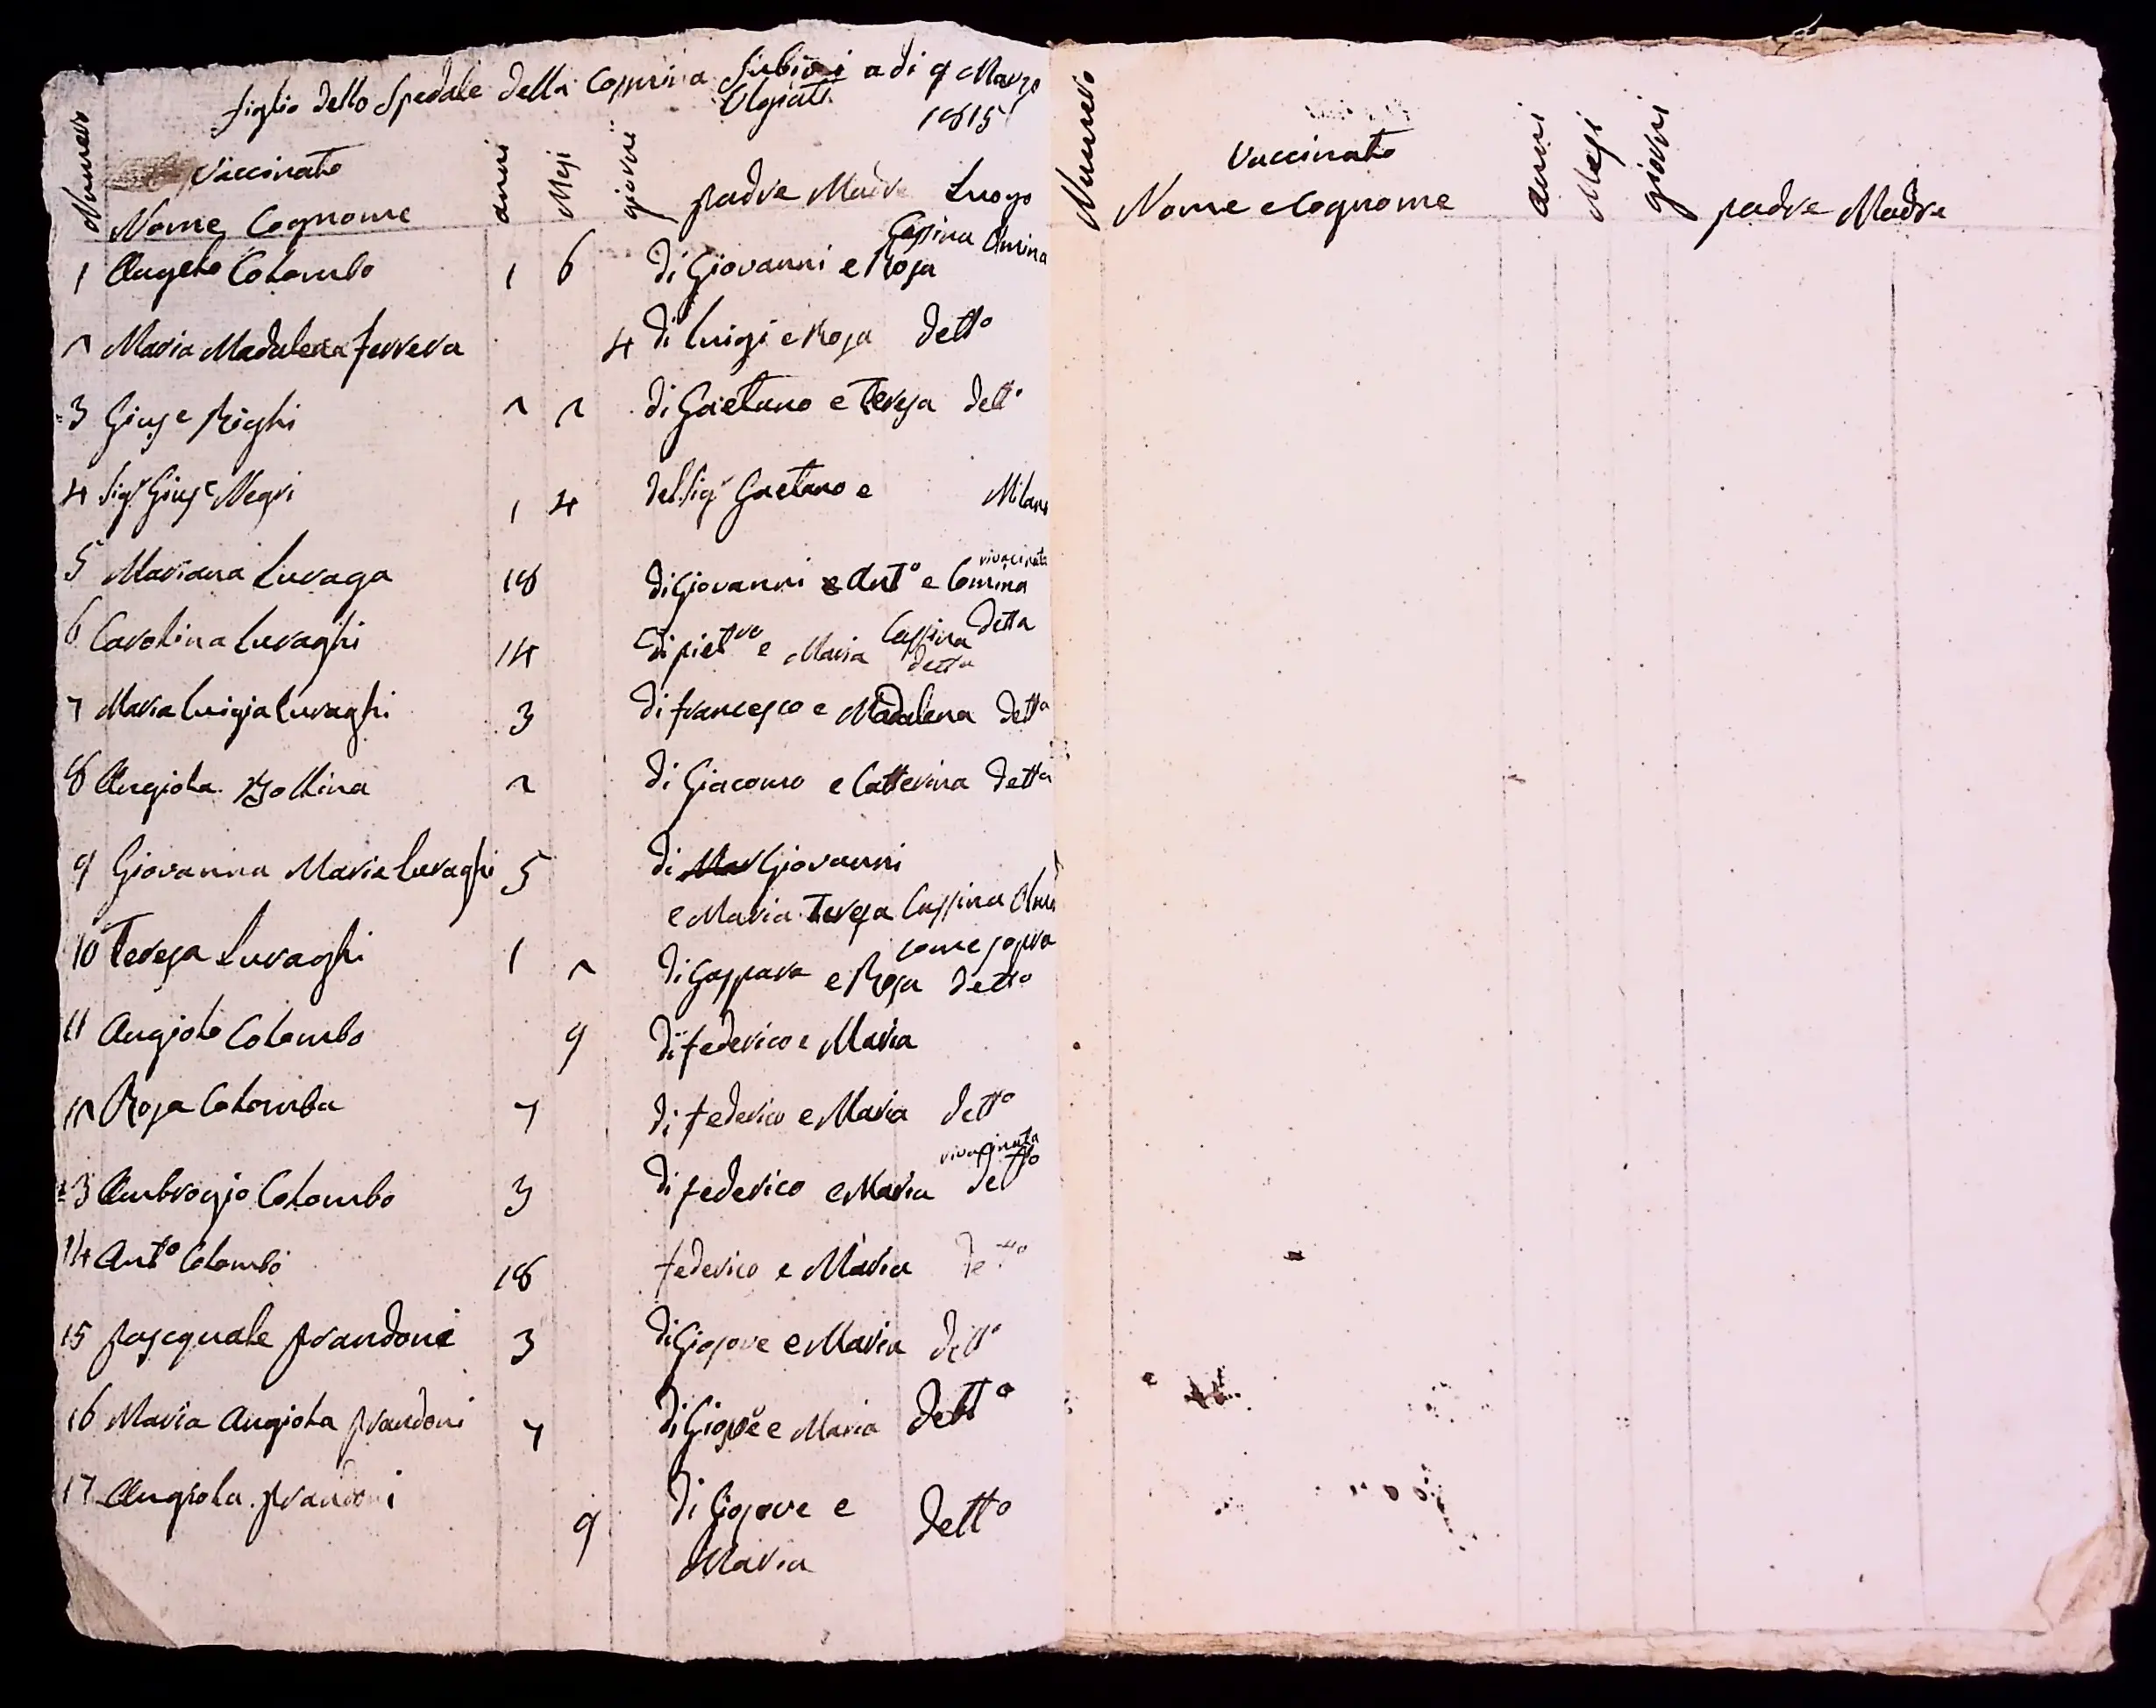 figlio dello Spedale della Cassina Subiosi a di 9 Marzo
Olgiate
1815
Numero Vaccinato anni Mesi giorni
Nome Cognome padre Madre Luogo
Cassina Olmina
1 Angelo Colombo 1 6 di Giovanni e Rosa
2 Maria Madalena ferrera 4 di Luigi e Rosa detto
3 Gius e Righi 2 2 di Gaetano e Teresa dett
4 Sigr Gius e Negri 1 4 del Sigr Gaetano e Milano
rivacinata
5 Mariana Luraga 18 di Giovanni e Anto e
6 Carolina Luraghi 14 di pietro e Maria Cassina detta
detta
7 Maria Luigia Luraghi 3 di francesco e Madalena detta
8 Angiola Bollina 2 di Giacomo e Catterina detta
9 Giovanna Maria Luraghi 5 di Mar Giovanni
e Maria Teresa Cassina
come sopra
10 Teresa Luraghi 1 2 di Gaspara e Rosa detto
11 Angiolo Colombo 9 di federico e Maria
12 Rosa Colomba 7 di federico e Maria detto
rivacinata
13 Ambrogio Colombo 3 di federico e Maria detto
14 Anto Colombo 18 federico e Maria detto
15 pasquale prandoni 3 di Giosove e Maria detto
16 Maria Angiola prandoni 7 di Giosve e Maria detto
17 Angiola prandoni 9 di Giosove e detto
Maria
Numero Vaccinato anni Mesi giorni
Nome e Cognome padre Madre